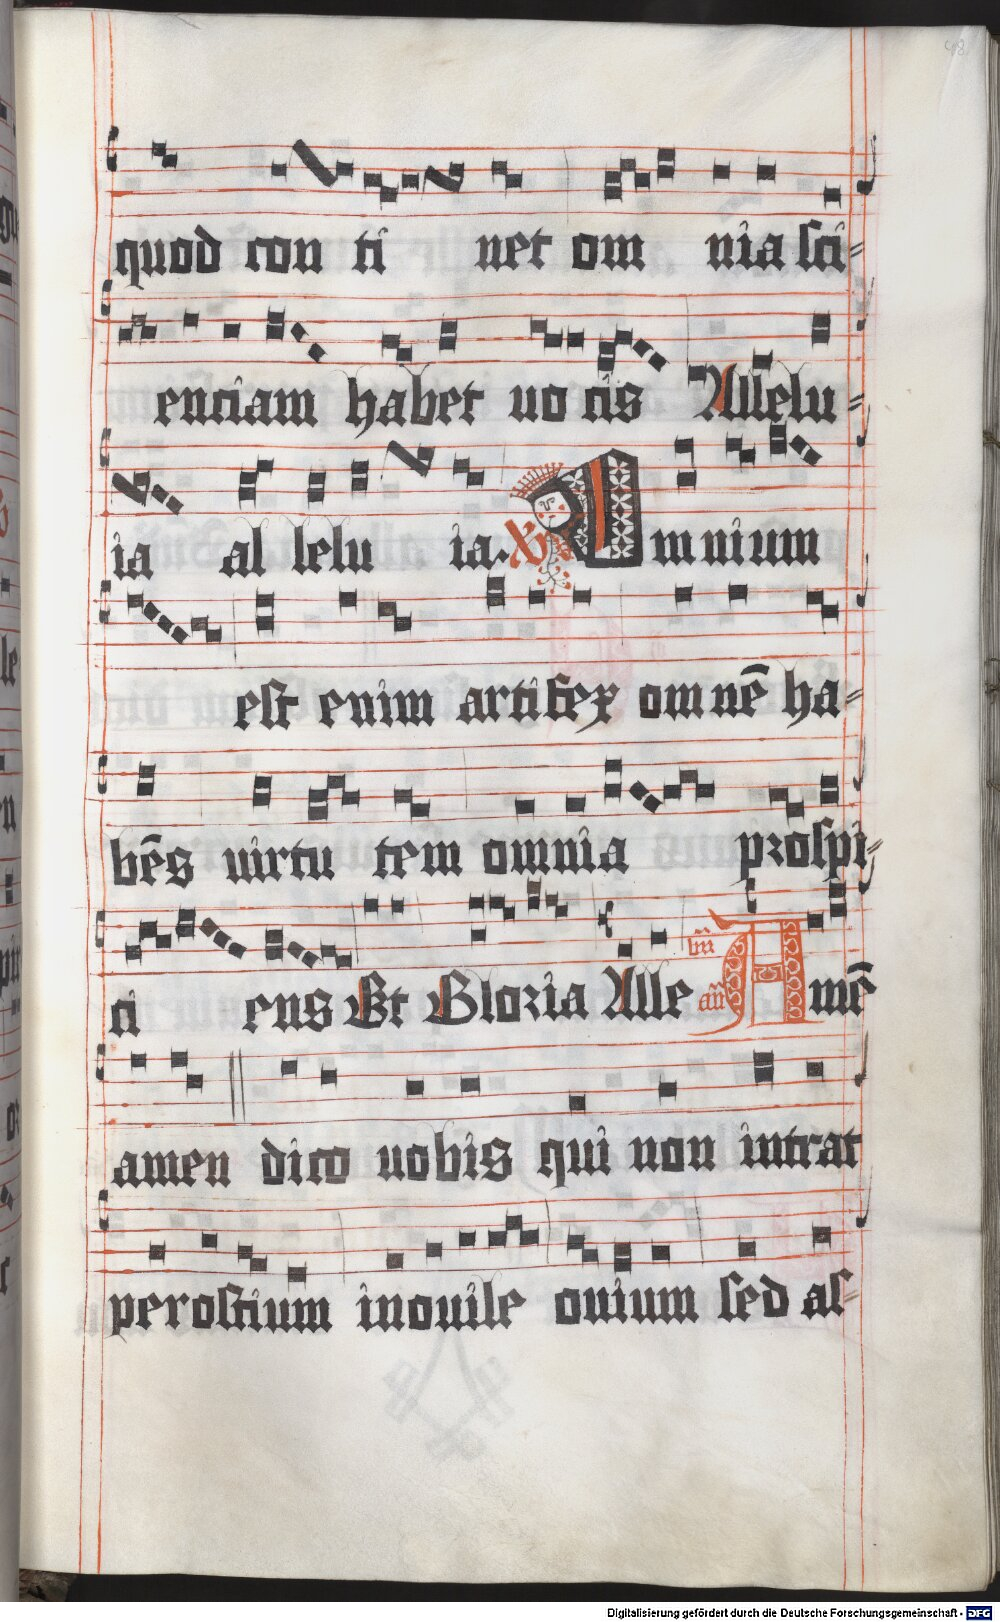 48
quod con ti net om nia sci-
enciam habet uo cis Allelu-
ia al lelu ia. Omnium
est enim artifex omnē ha-
bēs uirtu tem omnia prospi-
ci ens Et Gloria Alle Amē
amen dico uobis qui non intrat
per ostium in ouile ouium sed al-
Digitalisierung gefördert durch die Deutsche Forschungsgemeinschaft - DFG